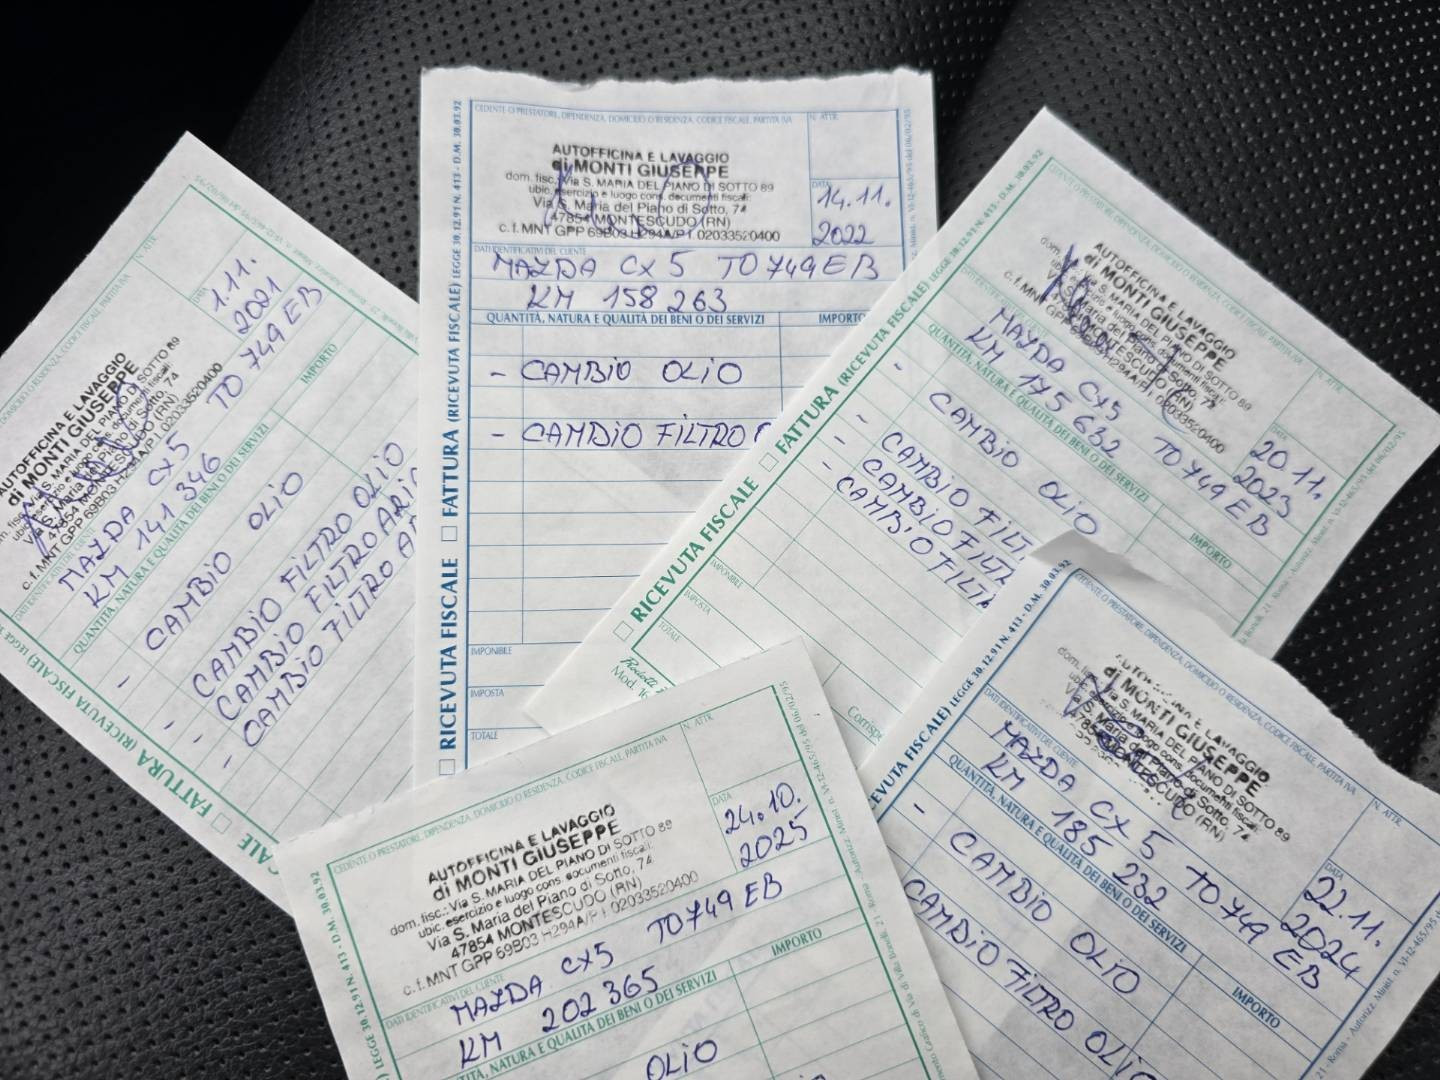 CEDENTE O PRESTATORE, DIPENDENZA, DOMICILIO O RESIDENZA, CODICE FISCALE, PARTITA IVA
N. ATTR.
AUTOFFICINA E LAVAGGIO
di MONTI GIUSEPPE
dom. fisc.: Via S. MARIA DEL PIANO DI SOTTO 89
ubic. esercizio e luogo cons. documenti fiscali:
Via S. Maria del Piano di Sotto, 74
47854 MONTESCUDO (RN)
c. f. MNT GPP 69B03 H294A/P.I. 02033520400
DATA
14.11.
2022
DATI IDENTIFICATIVI DEL CLIENTE
MAZDA CX 5 TO 749 EB
KM 158 263
QUANTITÀ, NATURA E QUALITÀ DEI BENI O DEI SERVIZI
IMPORTO
- CAMBIO OLIO
- CAMBIO FILTRO
IMPONIBILE
IMPOSTA
TOTALE
RICEVUTA FISCALE
FATTURA (RICEVUTA FISCALE) LEGGE 30.12.91 N. 413 - D.M. 30.03.92
N. ATTR.
AUTOFFICINA E LAVAGGIO
di MONTI GIUSEPPE
MARIA DEL PIANO DI SOTTO 89
Via S. Maria del Piano di Sotto, 74
47854 MONTESCUDO (RN)
c. f. MNT GPP 69B03 H294A/P.I. 02033520400
DATA
1.11.
2021
MAZDA CX5 TO 749 EB
KM 141 346
QUANTITÀ, NATURA E QUALITÀ DEI BENI O DEI SERVIZI
IMPORTO
- CAMBIO OLIO
- CAMBIO FILTRO OLIO
- CAMBIO FILTRO ARIA
- CAMBIO FILTRO
FATTURA (RICEVUTA FISCALE)
CEDENTE O PRESTATORE, DIPENDENZA, DOMICILIO O RESIDENZA, CODICE FISCALE, PARTITA IVA
N. ATTR.
AUTOFFICINA E LAVAGGIO
di MONTI GIUSEPPE
MARIA DEL PIANO DI SOTTO 89
02033520400
DATA
20.11.
2023
MAZDA CX5 TO 749 EB
KM 175 632
QUANTITÀ, NATURA E QUALITÀ DEI BENI O DEI SERVIZI
IMPORTO
- CAMBIO OLIO
- CAMBIO FILT
- CAMBIO FILTR
CAMBIO FILTR
IMPONIBILE
IMPOSTA
TOTALE
RICEVUTA FISCALE
FATTURA (RICEVUTA FISCALE) LEGGE 30.12.91 N. 413 - D.M. 30.03.92
CEDENTE O PRESTATORE, DIPENDENZA, DOMICILIO O RESIDENZA, CODICE FISCALE, PARTITA IVA
N. ATTR.
AUTOFFICINA E LAVAGGIO
di MONTI GIUSEPPE
dom. fisc.: Via S. MARIA DEL PIANO DI SOTTO 89
ubic. esercizio e luogo cons. documenti fiscali:
Via S. Maria del Piano di Sotto, 74
47854 MONTESCUDO (RN)
c. f. MNT GPP 69B03 H294A/P.I. 02033520400
DATA
24.10.
2025
DATI IDENTIFICATIVI DEL CLIENTE
MAZDA CX5 TO749 EB
KM 202 365
QUANTITÀ, NATURA E QUALITÀ DEI BENI O DEI SERVIZI
IMPORTO
OLIO
LEGGE 30.12.91 N. 413 - D.M. 30.03.92
CEDENTE O PRESTATORE, DIPENDENZA, DOMICILIO O RESIDENZA, CODICE FISCALE, PARTITA IVA
N. ATTR.
di MONTI GIUSEPPE
Via S. MARIA DEL PIANO DI SOTTO 89
Maria del Piano di Sotto, 74
47854 MONTESCUDO (RN)
DATA
22.11.
2024
DATI IDENTIFICATIVI DEL CLIENTE
MAZDA CX 5 TO 749 EB
KM 185 232
QUANTITÀ, NATURA E QUALITÀ DEI BENI O DEI SERVIZI
IMPORTO
- CAMBIO OLIO
CAMBIO FILTRO OLIO
LEGGE 30.12.91 N. 413 - D.M. 30.03.92